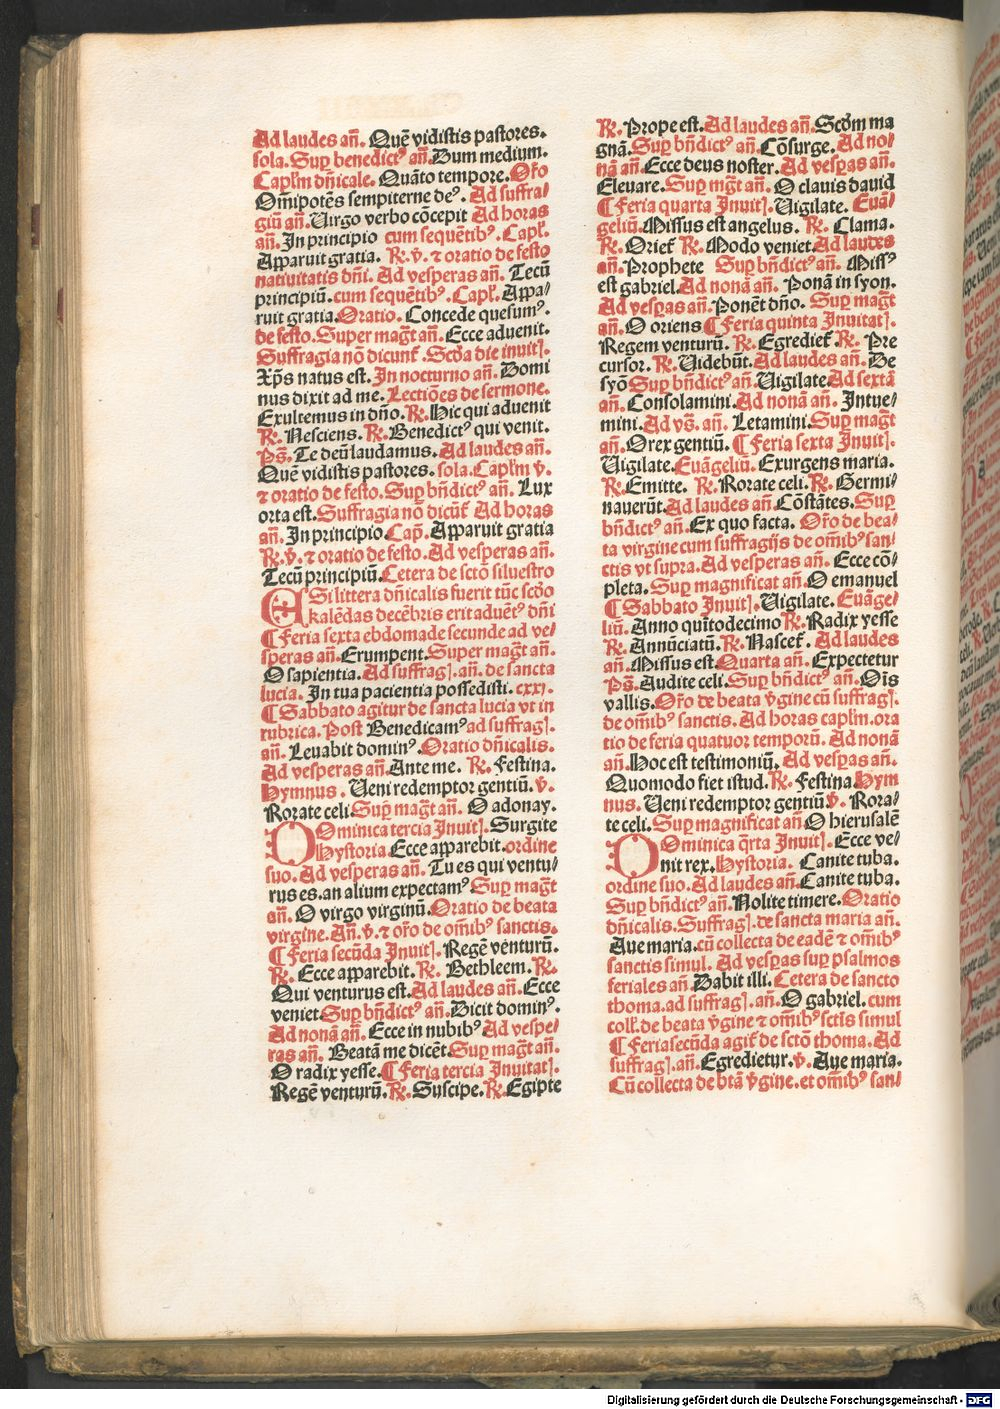 Ad laudes añ. Quē vidistis pastores.
sola. Suꝑ benedictꝰ añ. Dum medium.
Capl'm dñicale. Quāto tempore. Or̄o
Om̄ipotēs sempiterne deꝰ. Ad suffra⸗
giū añ. Virgo verbo cōcepit Ad horas
añ. In principio cum sequētibꝰ. Capl'.
Apparuit gratia. ℟. v̄. ⁊ oratio de festo
natiuitatis dñi. Ad vesperas añ. Tecū
principiū. cum sequētibꝰ. Capl'. Appa⸗
ruit gratia. Oratio. Concede quesumꝰ.
de festo. Super maḡt añ. Ecce aduenit.
Suffragia nō dicunt̄. Scd̄a die inuiꝉ.
Xp̄s natus est. In nocturno añ. Domi
nus dixit ad me. Lectiōes de sermone.
Exultemus in dño. ℟. Hic qui aduenit
℟. Nesciens. ℟. Benedictꝰ qui venit.
Ps̄. Te deū laudamus. Ad laudes añ.
Quē vidistis pastores. sola. Capl'm v̄.
⁊ oratio de festo. Suꝑ bñdictꝰ añ. Lux
orta est. Suffragia nō dicūt̄ Ad horas
añ. In principio. Cap̄. Apparuit gratia
℟. v̄. ⁊ oratio de festo. Ad vesperas añ.
Tecū principiū. Cetera de scto siluestro
A Si littera dñicalis fuerit tūc scd̄o
kalēdas decēbris erit aduētꝰ dñi
¶ Feria sexta ebdomade secunde ad ve⸗
speras añ. Erumpent. Super maḡt añ.
O sapientia. Ad suffragꝉ. añ. de sancta
lucia. In tua pacientia possedisti. cxxj.
¶ Sabbato agitur de sancta lucia vt in
rubrica. Post Benedicamꝰ ad suffragꝉ.
añ. Leuabit dominꝰ. Oratio dñicalis.
Ad vesperas añ. Ante me. ℟. Festina.
Hymnus. Veni redemptor gentiū. v̄.
Rorate celi. Suꝑ maḡt añ. O adonay.
Dominica tercia Inuiꝉ. Surgite
Hystoria. Ecce apparebit. ordine
suo. Ad vesperas añ. Tu es qui ventu⸗
rus es. an alium expectamꝰ Suꝑ maḡt
añ. O virgo virginū. Oratio de beata
virgine. Añ. v̄. ⁊ or̄o de om̄ibꝰ sanctis.
¶ Feria secūda Inuiꝉ. Regē venturū.
℟. Ecce apparebit. ℟. Bethleem. ℟.
Qui venturus est. Ad laudes añ. Ecce
veniet. Suꝑ bñdictꝰ añ. Dicit dominꝰ.
Ad nonā añ. Ecce in nubibꝰ Ad vespe⸗
ras añ. Beatā me dicēt. Suꝑ maḡt añ.
O radix yesse. ¶ Feria tercia Inuitaꝉ.
Regē venturū. ℟. Suscipe. ℟. Egipte
℟. Prope est. Ad laudes añ. Scd̄m ma
gnā. Suꝑ bñdictꝰ añ. Cōsurge. Ad no⸗
nā añ. Ecce deus noster. Ad vesꝑas añ.
Eleuare. Suꝑ mḡt añ. O clauis dauid
¶ Feria quarta Inuiꝉ. Vigilate. Euā⸗
geliū. Missus est angelus. ℟. Clama.
℟. Oriet̄ ℟. Modo veniet. Ad laudes
añ. Prophete Suꝑ bñdictꝰ añ. Missꝰ
est gabriel. Ad nonā añ. Ponā in syon.
Ad vesꝑas añ. Ponēt dño. Suꝑ maḡt
añ. O oriens ¶ Feria quinta Inuitaꝉ.
Regem venturū. ℟. Egrediet̄. ℟. Pre
cursor. ℟. Videbūt. Ad laudes añ. De
syō Suꝑ bñdictꝰ añ Vigilate Ad sextā
añ. Consolamini. Ad nonā añ. Intue⸗
mini. Ad vs̄. añ. Letamini. Suꝑ maḡt
añ. O rex gentiū. ¶ Feria sexta Inuiꝉ.
Vigilate. Euāgeliū. Exurgens maria.
℟. Emitte. ℟. Rorate celi. ℟. Germi⸗
nauerūt. Ad laudes añ Cōstātes. Suꝑ
bñdictꝰ añ. Ex quo facta. Or̄o de bea⸗
ta virgine cum suffragijs de om̄ibꝰ san⸗
ctis vt supra. Ad vesperas añ. Ecce cō⸗
pleta. Suꝑ magnificat añ. O emanuel
¶ Sabbato Inuiꝉ. Vigilate. Euāge⸗
liū. Anno quītodecimo ℟. Radix yesse
℟. Annūciatū. ℟. Nascet̄. Ad laudes
añ. Missus est. Quarta añ. Expectetur
Ps̄. Audite celi. Suꝑ bñdictꝰ añ. Oīs
vallis. Or̄o de beata v̄gine cū suffragꝉ.
de om̄ibꝰ sanctis. Ad horas capl'm. ora
tio de feria quatuor temporū. Ad nonā
añ. Hoc est testimoniū. Ad vesꝑas añ.
Quomodo fiet istud. ℟. Festina Hym
nus. Veni redemptor gentiū v̄. Rora⸗
te celi. Suꝑ magnificat añ O hierusalē
Dominica q̄rta Inuiꝉ. Ecce ve⸗
nit rex. Hystoria. Canite tuba.
ordine suo. Ad laudes añ. Canite tuba.
Suꝑ bñdictꝰ añ. Nolite timere. Oratio
dñicalis. Suffragꝉ. de sancta maria añ.
Aue maria. cū collecta de eadē ⁊ om̄ibꝰ
sanctis simul. Ad vesꝑas suꝑ psalmos
feriales añ. Dabit illi. Cetera de sancto
thoma. ad suffragꝉ. añ. O gabriel. cum
coll'. de beata v̄gine ⁊ om̄ibꝰ sctīs simul
¶ Feria secūda agit̄ de sctō thoma. Ad
suffragꝉ. añ. Egredietur. v̄. Aue maria.
Cū collecta de btā v̄gine. et om̄ibꝰ san⸗
Digitalisierung gefördert durch die Deutsche Forschungsgemeinschaft - DFG